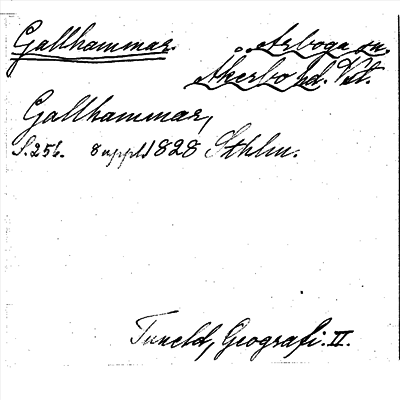 Gallhammar. Arboga sn.
Åkerbo hd. Vstl.
Gallhammar,
S. 256. 8 uppl. 1828 Sthlm.
Tuneld, Geografi. II.